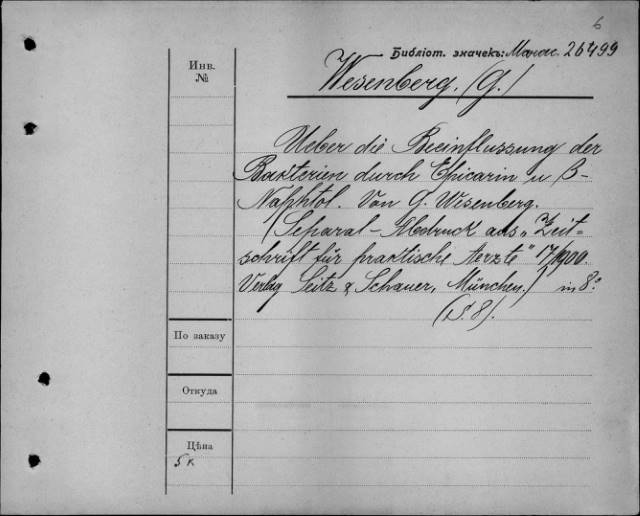 6
Библіот. значекъ: 26499
Инв.
№
Wesenberg. (G.)
Ueber die Beeinflussung der
Bakterien durch Epicarin u β-
Naphtol. Von G. Wesenberg.
(Separat-Abdruck aus „Zeit-
schrift für praktische Aerzte" 17/1900.
Verlag Seitz & Schauer, München.) in 8°
(S. 8).
По заказу
Откуда
Цѣна
5 к